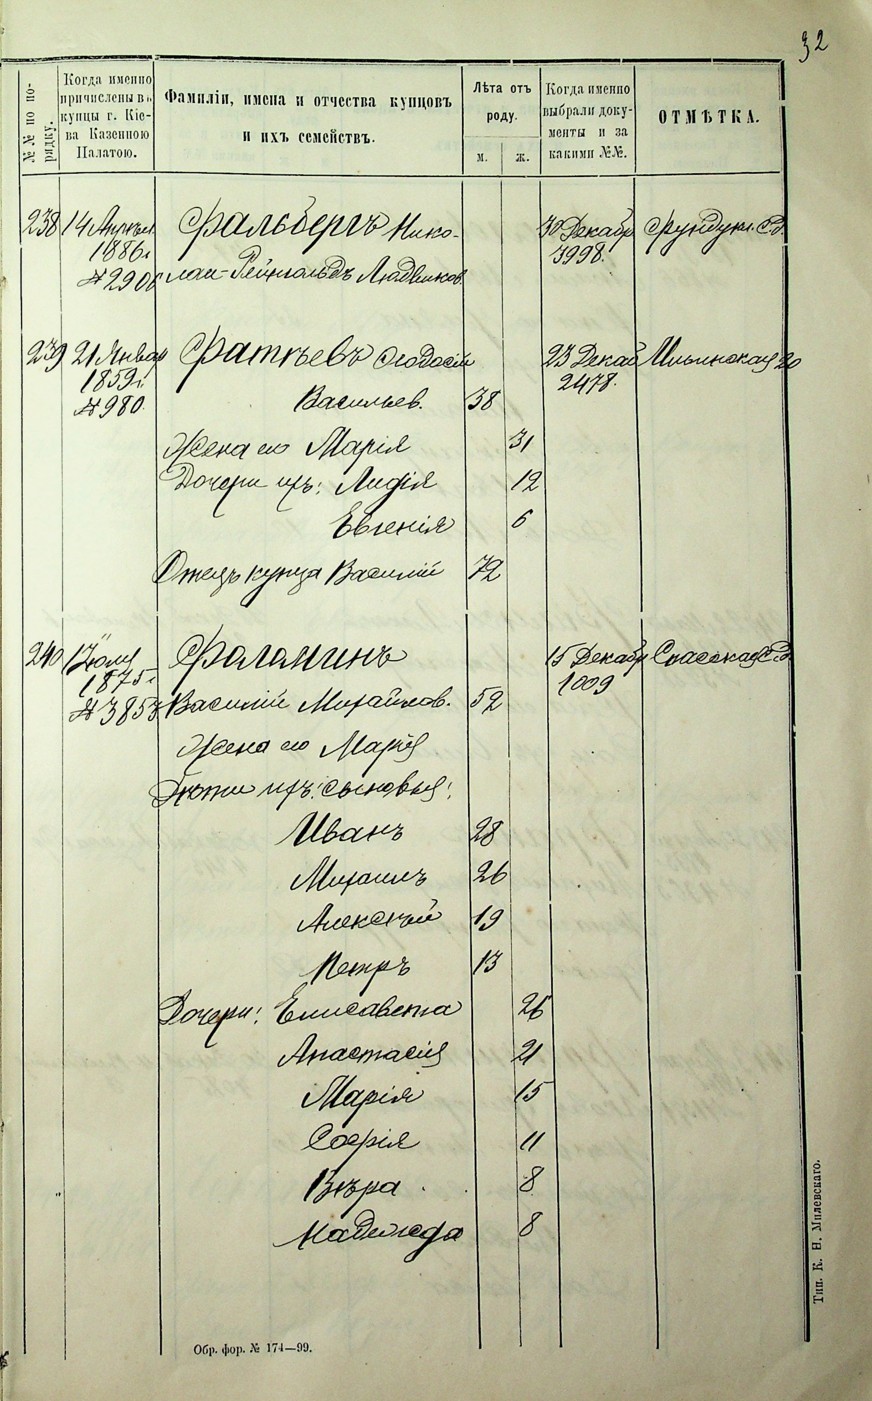 32
№№ по по-
рядку.
Когда именно
причислены въ
купцы г. Кіе-
ва Казенною
Палатою.
Фамиліи, имена и отчества купцовъ
и ихъ семействъ.
Лѣта отъ
роду.
м.
ж.
Когда именно
выбрали доку-
менты и за
какими №№.
ОТМѢТКА.
238 14 Апрѣля Фальбергъ Нико- 30 Декабр Фундукл. С.д.
1886 г. 3998.
№ 2906 лай-Рейнгольдъ Людвигов.
239 21 Январ Фатѣевъ Ѳеодосій 23 Декаб Ильинская 20
1859 г. 2478.
№ 980. Васильев. 38
Жена его Марія 31
Дочери ихъ: Лидія 12
Евгенія 6
Отецъ купца Василій 72
240 Іюля Фаломинъ 15 Декабр Спасская С.д.
1875 г. 1009
№ 3853 Василій Михайлов. 52
Жена его Марія
Дѣти ихъ: сыновья:
Иванъ 28
Михаилъ 26
Алексѣй 19
Петръ 13
Дочери: Елисавета 26
Анастасія 21
Марія 15
Софія 11
Вѣра 8
Надежда 8
Обр. фор. № 174—99.
Тип. К. Н. Милевскаго.